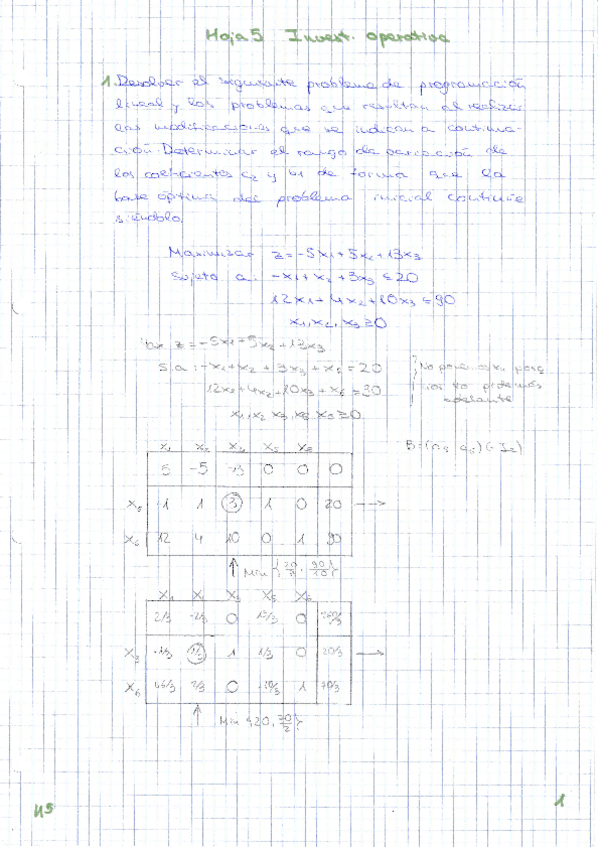 Hoja 5 Invest. operativa
1. Resolver el siguiente problema de programación
lineal y los problemas que resultan al realizar
las modificaciones que se indican a continua-
ción. Determinar el rango de variación de
los coeficientes c2 y b1 de forma que la
base óptima del problema inicial continúe
siéndolo.
Maximizar z = -5x1 + 5x2 + 13x3
Sujeto a: -x1 + x2 + 3x3 ≤ 20
12x1 + 4x2 + 10x3 ≤ 90
x1, x2, x3 ≥ 0
z = -5x1 + 5x2 + 13x3
s.a: -x1 + x2 + 3x3 + x5 = 20
12x1 + 4x2 + 10x3 + x6 = 90
x1, x2, x3, x5, x6 ≥ 0
x1 x2 x3 x5 x6
5 -5 -13 0 0 0
x5 1 1 3 1 0 20
x6 12 4 10 0 1 90
Min { 20/3, 90/10 }
x1 x2 x3 x5 x6
2/3 -2/3 0 13/3 0 260/3
x3 -1/3 1/3 1 1/3 0 20/3
x6 46/3 2/3 0 -10/3 1 70/3
Min {20, 70/2}
1